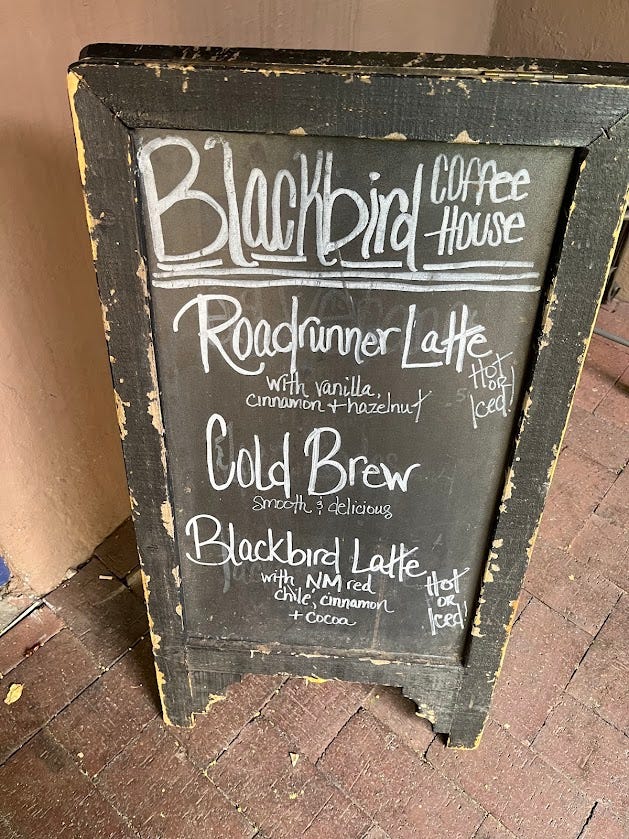 Blackbird COFFEE HOUSE
Roadrunner Latte
with vanilla,
cinnamon + hazelnut
Hot
OR
Iced!
Cold Brew
smooth & delicious
Blackbird Latte
with NM red
chile, cinnamon
+ cocoa
Hot
OR
Iced!